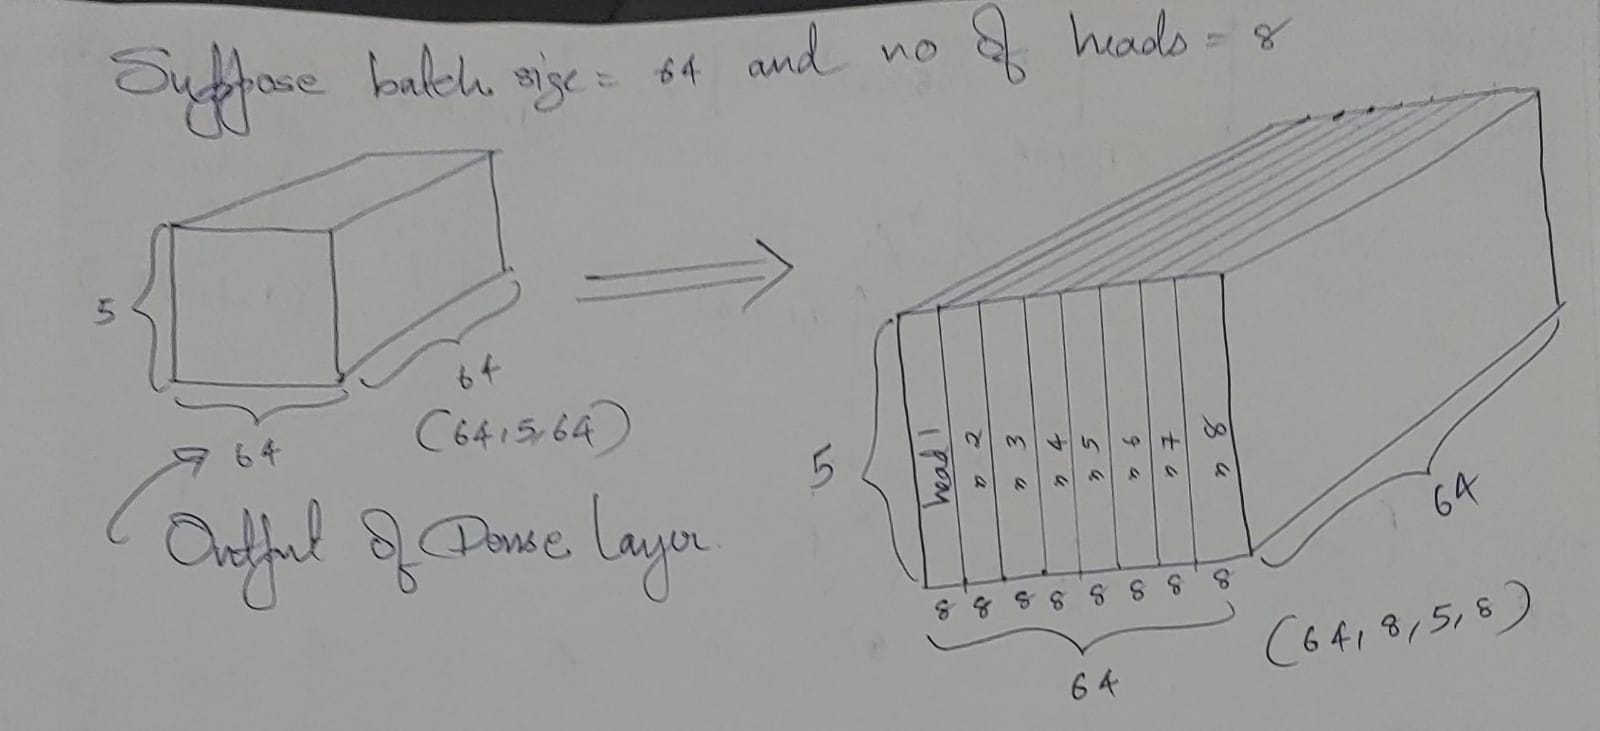 Suppose batch size = 64 and no of heads = 8
5
64
64
(64,5,64)
Output of Dense Layer.
5
head 1
" 2
" 3
" 4
" 5
" 6
" 7
" 8
8 8 8 8 8 8 8 8
64
64
(64,8,5,8)